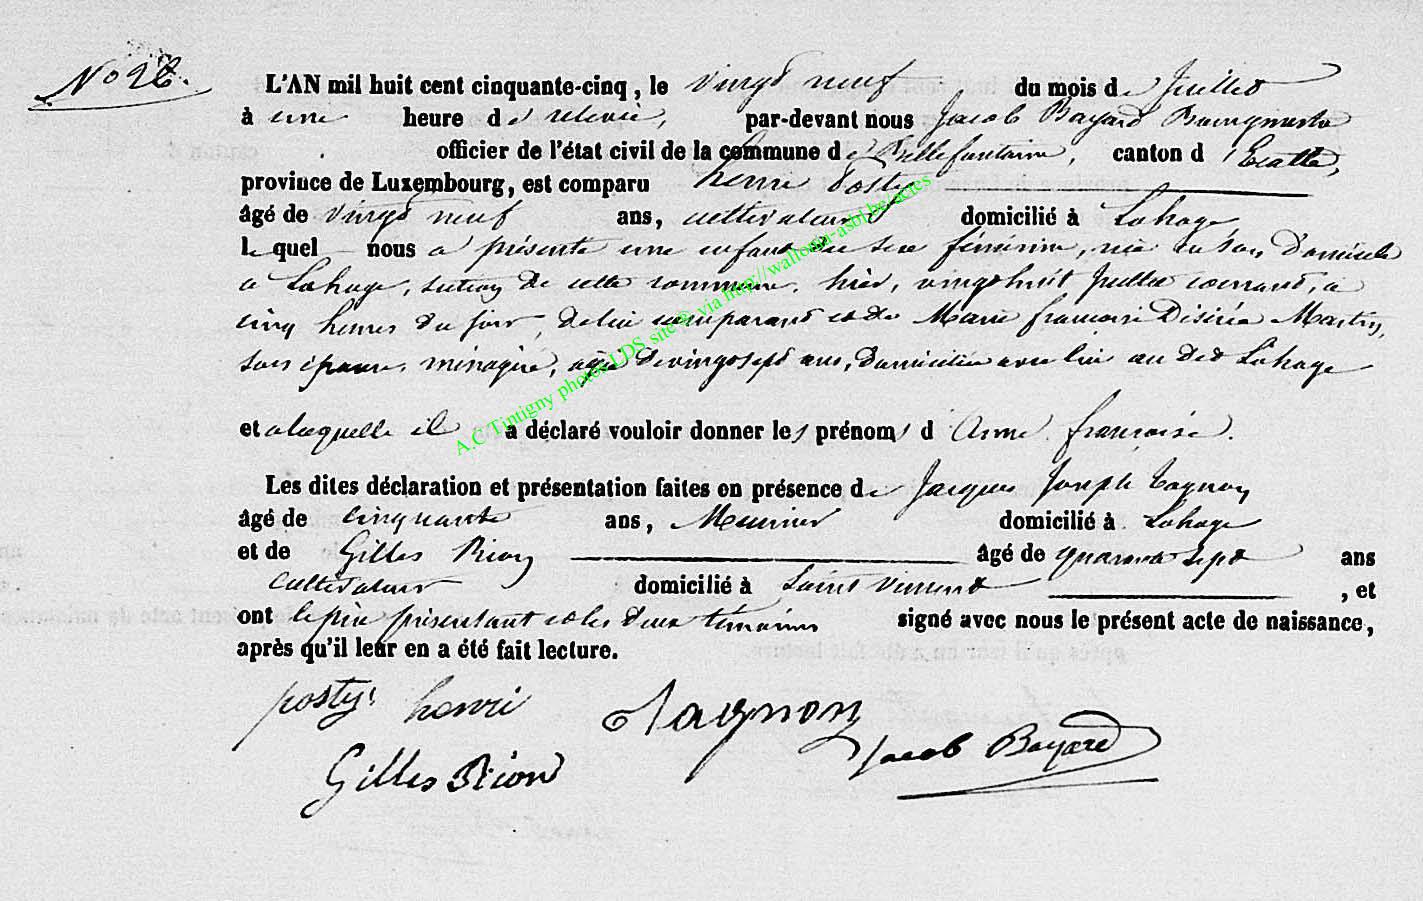 No 26.
L'AN mil huit cent cinquante-cinq, le vingt neuf du mois de Juillet
à une heure de relevée, par-devant nous Jacob Bayard Bourgmestre
officier de l'état civil de la commune de Bellefontaine, canton d'Etalle,
province de Luxembourg, est comparu henri Posty
âgé de vingt neuf ans, cultivateur domicilié à Lahage,
lequel nous a présenté une enfant du sexe féminin, née en son Domicile
a Lahage, section de cette commune, hier, vingt huit Juillet courant, a
cinq heures du soir, de lui comparant et de Marie françoise Désirée Martin,
son épouse, ménagère, agée de vingt sept ans, Domiciliée avec lui au dit Lahage
et a laquelle il a déclaré vouloir donner les prénoms d'Anne françoise.
Les dites déclaration et présentation faites en présence de Jacques Joseph Tagnon
âgé de cinquante ans, Meunier domicilié à Lahage
et de Gilles Rion âgé de quarante sept ans
cultivateur domicilié à Saint Vincent , et
ont le père présentant et les deux témoins signé avec nous le présent acte de naissance,
après qu'il leur en a été fait lecture.
posty henri Tagnon
Gilles Rion Jacob Bayard
A.C Tintigny photos LDS site @ via http://wallonia-asbl.be/actes